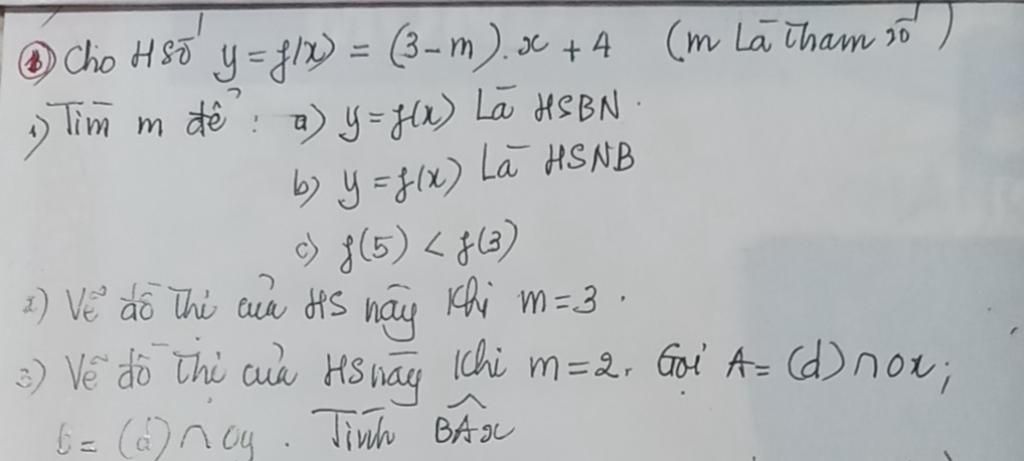 ① Cho HSố y = f(x) = (3-m).x + 4 (m Là tham số)
1) Tìm m để : a) y = f(x) Là HSBN.
b) y = f(x) Là HSNB
c) f(5) < f(3)
2) Vẽ đồ thị của HS này Khi m = 3.
3) Vẽ đồ thị của HS này Khi m = 2. Gọi A = (d) ∩ ox;
B = (d) ∩ oy. Tính \widehat{BAx}